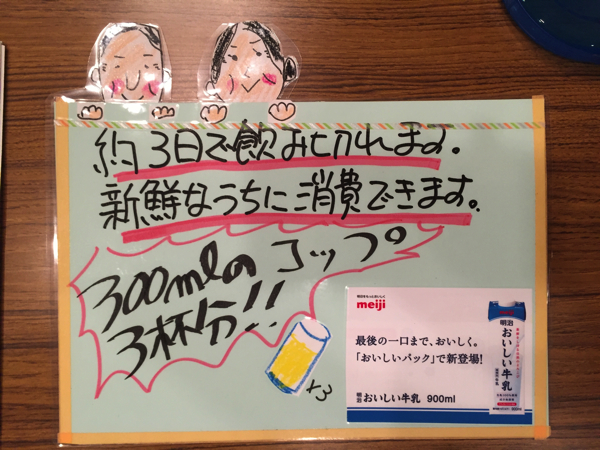 約3日で飲み切れます。
新鮮なうちに消費できます。
300mlのコップ
3杯分!!
×3
明日をもっとおいしく
meiji
最後の一口まで、おいしく。
「おいしいパック」で新登場!
明治 おいしい牛乳 900ml
明治
おいしい牛乳